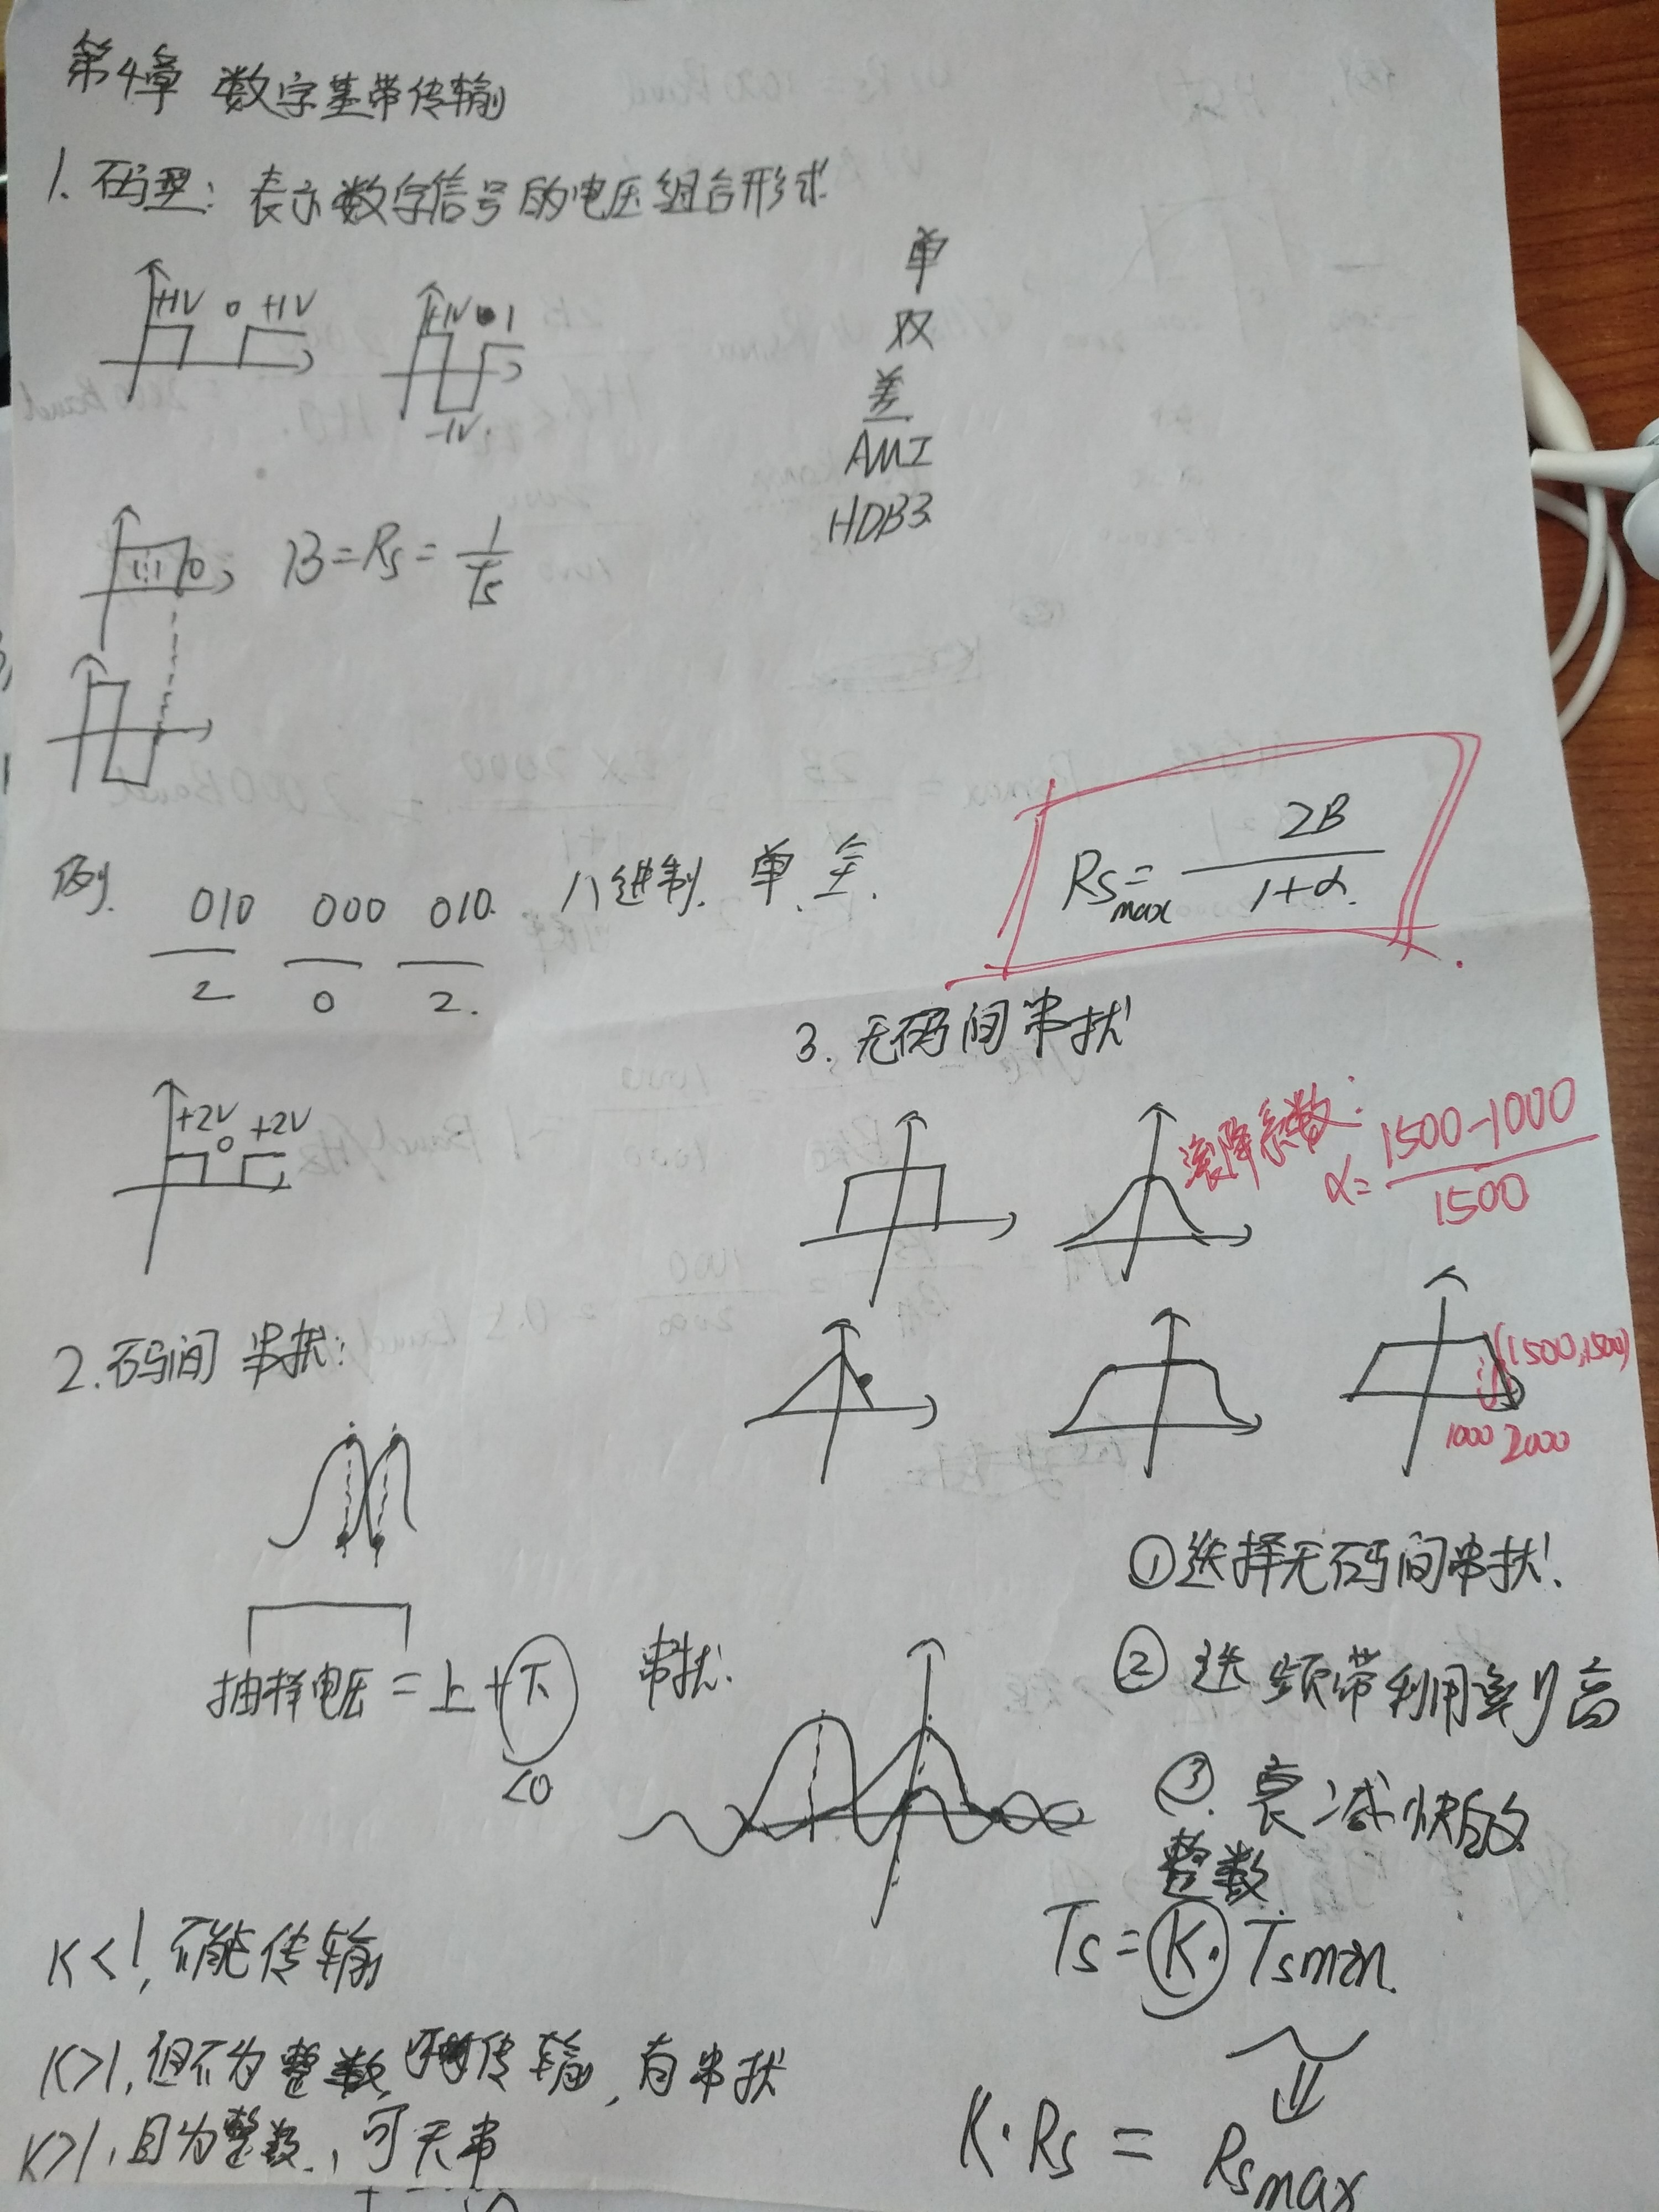 第4章 数字基带传输
1. 码型: 表示数字信号的电压组合形式
单
双
差
AMI
HDB3
+1V 0 +1V
+1V 1
-1V
B=Rs=1/Ts
例. 010 000 010. 八进制. 单.全.
2 0 2.
+2V 0 +2V
Rsmax=2B/1+α.
3. 无码间串扰
滚降系数:
α=1500-1000/1500
(1500,1500)
1000 2000
2.码间串扰:
抽样电压=上+下
<0
串扰.
①选择无码间串扰.
②选频带利用率η高
③.衰减快的
整数
Ts=K·Tsmin.
K<1,不能传输
K>1,但不为整数,可传输,有串扰
K>1,且为整数,可无串
K·Rs=Rsmax